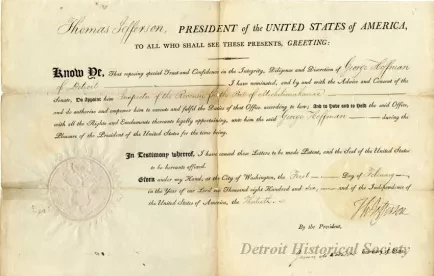 Thomas Jefferson, PRESIDENT of the UNITED STATES of AMERICA,
TO ALL WHO SHALL SEE THESE PRESENTS, GREETING:
Know Ye, That reposing special Trust and Confidence in the Integrity, Diligence and Discretion of George Hoffman
of Detroit I have nominated, and by and with the Advice and Consent of the
Senate, Do Appoint him Inspector of the Revenue for the Port of Michilimakinac
and do authorize and empower him to execute and fulfil the Duties of that Office according to law; And to Have and to Hold the said Office,
with all the Rights and Emoluments thereunto legally appertaining, unto him the said George Hoffman during the
Pleasure of the President of the United States for the time being.
In Testimony whereof, I have caused these Letters to be made Patent, and the Seal of the United States
to be hereunto affixed.
Given under my Hand, at the City of Washington, the First Day of February
in the Year of our Lord one Thousand eight Hundred and six, and of the Independence of the
United States of America, the Thirtieth.
Th Jefferson
By the President,
James Madison Secretary of State
Detroit Historical Society